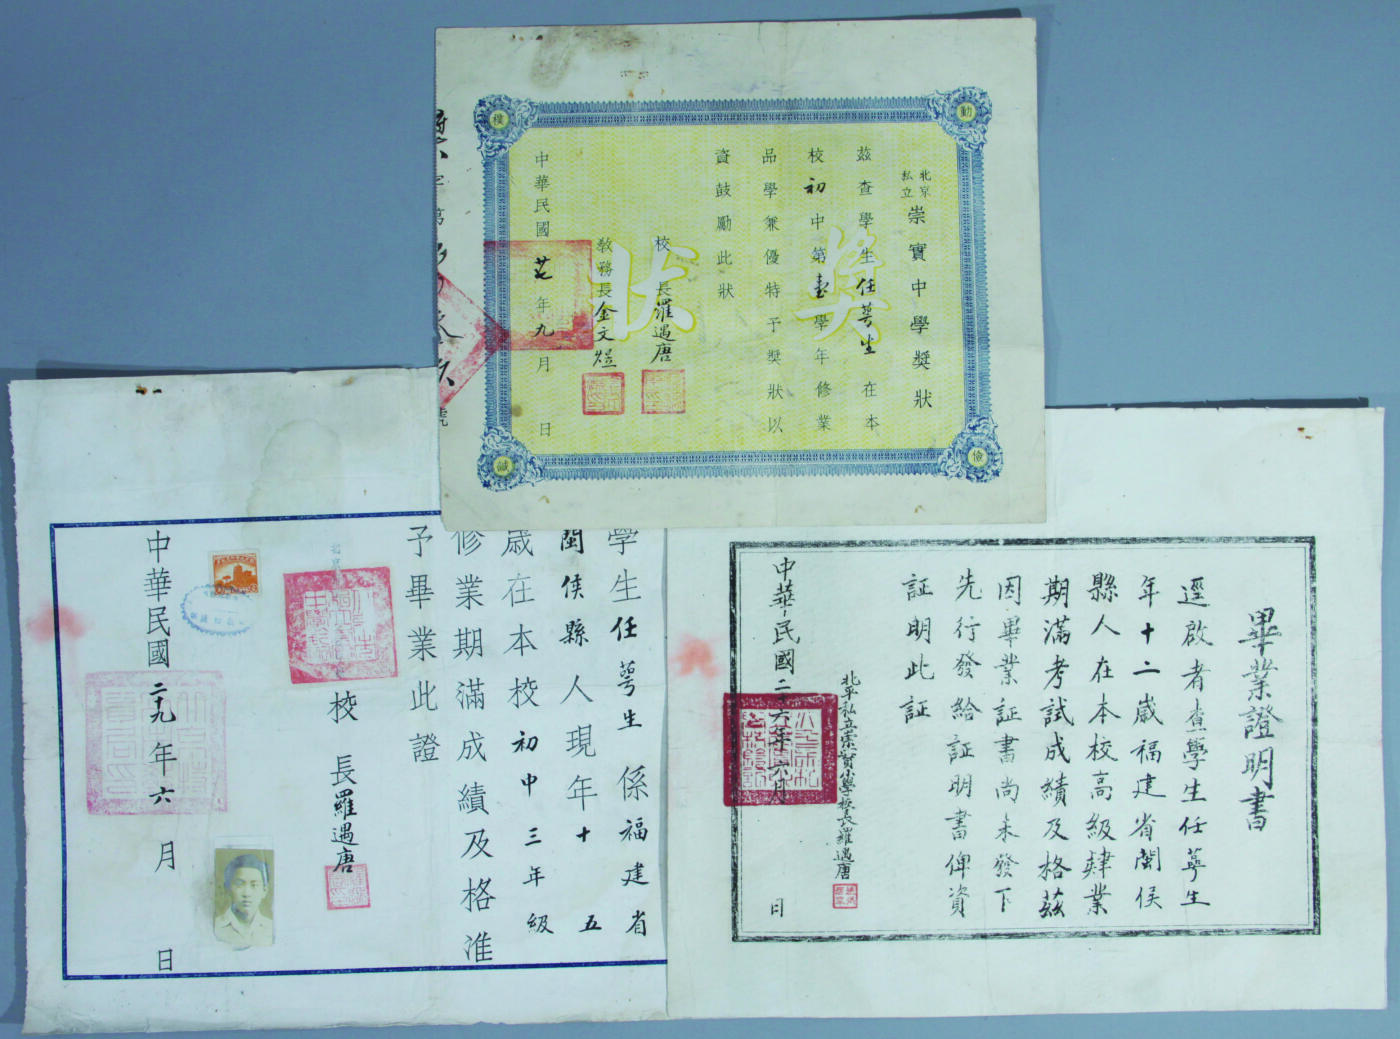 勤
樸
儉
誠
北京
私立
崇實中學獎狀
茲查學生任萼生在本
校初中第壹學年修業
品學兼優特予獎狀以
資鼓勵此狀
獎狀
校長羅遇唐
教務長金文
中華民國廿年九月 日
字第
號
學生任萼生係福建省
閩侯縣人現年十五
歲在本校初中三年級
修業期滿成績及格准
予畢業此證
校長羅遇唐
中華民國二十九年六月 日
畢業證明書
逕啟者查學生任萼生
年十二歲福建省閩侯
縣人在本校高級肄業
期滿考試成績及格茲
因畢業証書尚未發下
先行發給証明書俾資
証明此証
北平私立崇實小學校長羅遇唐
中華民國二十六年六月 日